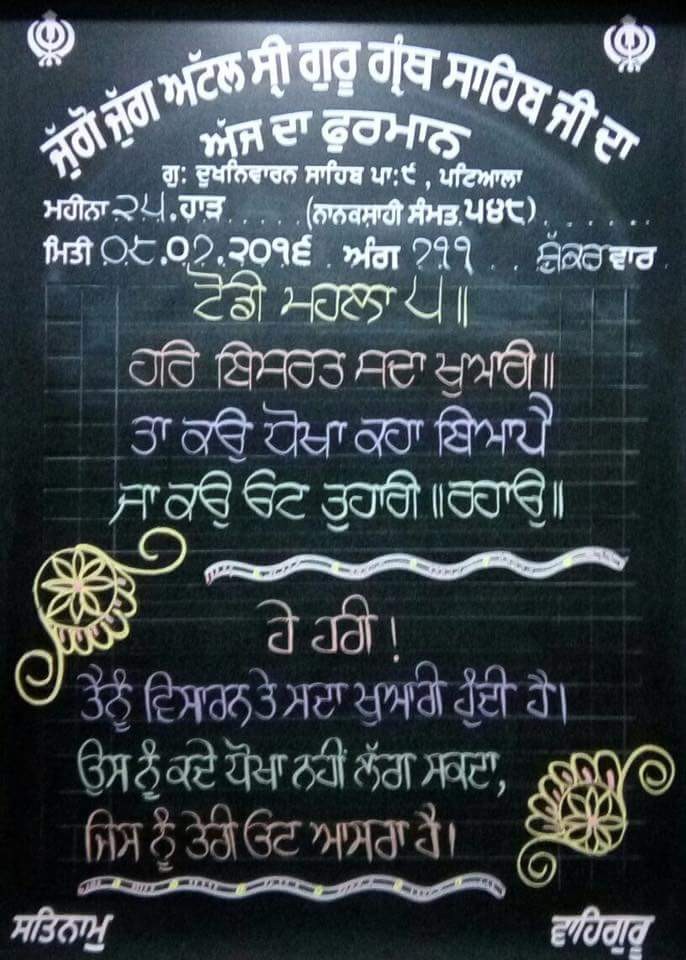 ਜੁੱਗੋ ਜੁੱਗ ਅਟੱਲ ਸ੍ਰੀ ਗੁਰੂ ਗ੍ਰੰਥ ਸਾਹਿਬ ਜੀ ਦਾ
ਅੱਜ ਦਾ ਫੁਰਮਾਨ
ਗੁ: ਦੁਖਨਿਵਾਰਨ ਸਾਹਿਬ ਪਾ:੯, ਪਟਿਆਲਾ
ਮਹੀਨਾ ੨੫.ਹਾੜ..... (ਨਾਨਕਸਾਹੀ ਸੰਮਤ.੫੪੮) ......
ਮਿਤੀ ੦੮.੦੭.੨੦੧੬. ਅੰਗ ੭੧੧... ਸ਼ੁੱਕਰਵਾਰ.
ਟੋਡੀ ਮਹਲਾ ੫॥
ਹਰਿ ਬਿਸਰਤ ਸਦਾ ਖੁਆਰੀ॥
ਤਾ ਕਉ ਧੋਖਾ ਕਹਾ ਬਿਆਪੈ
ਜਾ ਕਉ ਓਟ ਤੁਹਾਰੀ॥ਰਹਾਉ॥
ਹੇ ਹਰੀ!
ਤੈਨੂੰ ਵਿਸਾਰਨ ਤੇ ਸਦਾ ਖੁਆਰੀ ਹੁੰਦੀ ਹੈ।
ਉਸ ਨੂੰ ਕਦੇ ਧੋਖਾ ਨਹੀਂ ਲੱਗ ਸਕਦਾ,
ਜਿਸ ਨੂੰ ਤੇਰੀ ਓਟ ਆਸਰਾ ਹੈ।
ਸਤਿਨਾਮੁ ਵਾਹਿਗੁਰੂ